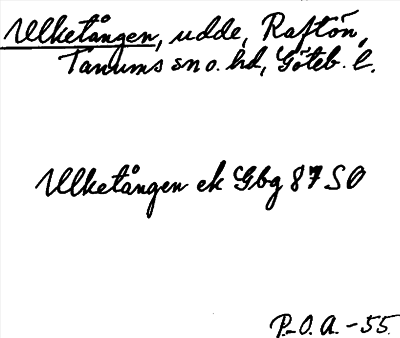 Ulketången, udde, Raftön,
Tanums sn o. hd, Göteb. l.
Ulketången ek Gbg 87 SO
P.-O. A. -55.